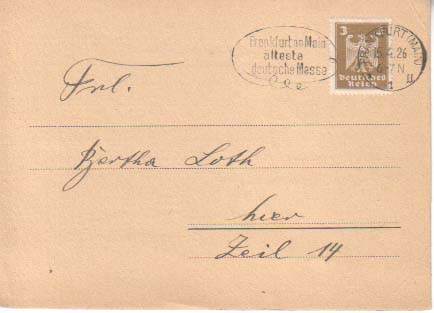 Frankfurt am Main
älteste
deutsche Messe
3
Deutsches
Reich
FRANKFURT (MAIN)
5.26
6-7N
Frl.
Bertha Loth
hier
Zeil 14